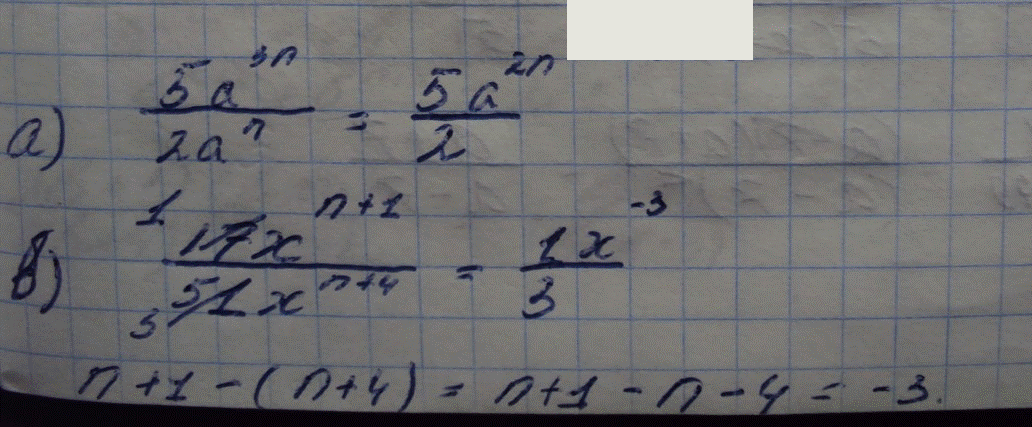 а) 5a^{3n} / 2a^{n} = 5a^{2n} / 2
в) 1 17x^{n+1} / 3 51x^{n+4} = 1x^{-3} / 3
n+1-(n+4) = n+1-n-4 = -3.